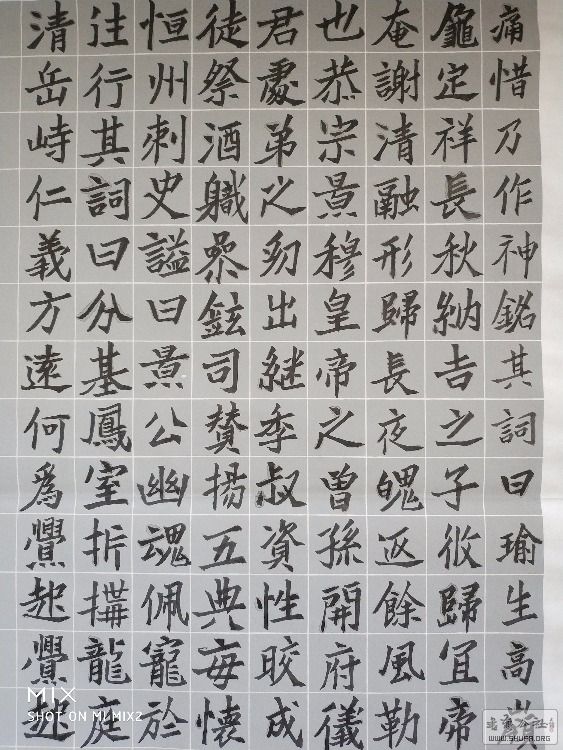 痛惜乃作神銘其詞曰瑜生高
龜定祥長秋納吉之子攸歸宜帝
奄謝清融形歸長夜魄返餘風勒
也恭宗景穆皇帝之曾孫開府儀
君處弟之幼出継季叔資性皎成
徒祭酒軄叅鉉司賛揚五典每懐
恒州刺史謚曰景公幽魂佩寵於
往行其詞曰分基鳳室折搆龍庭
清岳峙仁義方遠何爲釁起釁起
MIX
SHOT ON MI MIX2
WWW.SHUFA.ORG